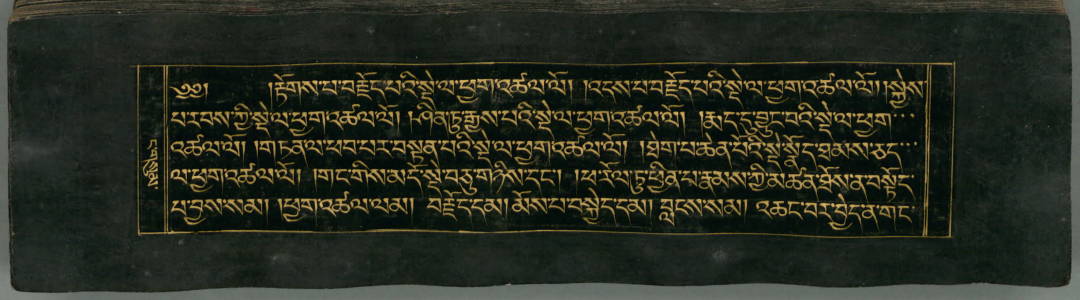 ༄༅། །རྟོགས་པ་བརྗོད་པའི་སྡེ་ལ་ཕྱག་འཚལ་ལོ། །འདས་པ་བརྗོད་པའི་སྡེ་ལ་ཕྱག་འཚལ་ལོ། །སྐྱེས་
པ་རབས་ཀྱི་སྡེ་ལ་ཕྱག་འཚལ་ལོ། །ཤིན་ཏུ་རྒྱས་པའི་སྡེ་ལ་ཕྱག་འཚལ་ལོ། །རྨད་དུ་བྱུང་བའི་སྡེ་ལ་ཕྱག་
འཚལ་ལོ། །གཏན་ལ་ཕབ་པར་བསྟན་པའི་སྡེ་ལ་ཕྱག་འཚལ་ལོ། །ཐེག་པ་ཆེན་པོའི་སྡེ་སྣོད་ཐམས་ཅད་
ལ་ཕྱག་འཚལ་ལོ། །གང་གིས་མདོ་སྡེ་བཅུ་གཉིས་དང་། །ཕ་རོལ་ཏུ་ཕྱིན་པ་རྣམས་ཀྱི་མཚན་ཐོས་ན་བསྟོད་
པ་བྱས་སམ། །ཕྱག་འཚལ་ལམ། བརྗོད་དམ། མོས་པ་བསྐྱེད་དམ། བླངས་སམ། འཆང་བར་བྱེད་ན་གང་